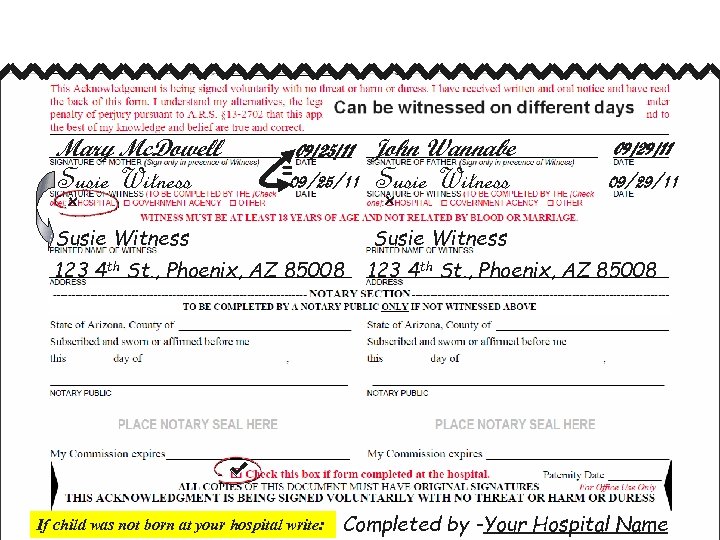 This Acknowledgement is being signed voluntarily with no threat or harm or duress. I have received written and oral notice and have read
the back of this form. I understand my alternatives, the lega
Can be witnessed on different days
under
penalty of perjury pursuant to A.R.S. §13-2702 that this app
nd to
the best of my knowledge and belief are true and correct.
Mary McDowell 09/25/11 John Wannabe 09/29/11
SIGNATURE OF MOTHER (Sign only in presence of Witness) DATE SIGNATURE OF FATHER (Sign only in presence of Witness) DATE
Susie Witness = 09/25/11 Susie Witness 09/29/11
SIGNATURE OF WITNESS (TO BE COMPLETED BY THE (Check DATE SIGNATURE OF WITNESS (TO BE COMPLETED BY THE (Check DATE
one): x HOSPITAL □ GOVERNMENT AGENCY □ OTHER one): x HOSPITAL □ GOVERNMENT AGENCY □ OTHER
WITNESS MUST BE AT LEAST 18 YEARS OF AGE AND NOT RELATED BY BLOOD OR MARRIAGE.
Susie Witness Susie Witness
PRINTED NAME OF WITNESS PRINTED NAME OF WITNESS
123 4th St., Phoenix, AZ 85008 123 4th St., Phoenix, AZ 85008
ADDRESS ADDRESS
NOTARY SECTION
TO BE COMPLETED BY A NOTARY PUBLIC ONLY IF NOT WITNESSED ABOVE
State of Arizona, County of State of Arizona, County of
Subscribed and sworn or affirmed before me Subscribed and sworn or affirmed before me
this day of , this day of ,
NOTARY PUBLIC NOTARY PUBLIC
PLACE NOTARY SEAL HERE PLACE NOTARY SEAL HERE
My Commission expires My Commission expires
✓ Check this box if form completed at the hospital. Paternity Date
ALL COPIES OF THIS DOCUMENT MUST HAVE ORIGINAL SIGNATURES For Office Use Only
THIS ACKNOWLEDGMENT IS BEING SIGNED VOLUNTARILY WITH NO THREAT OR HARM OR DURESS
If child was not born at your hospital write: Completed by -Your Hospital Name